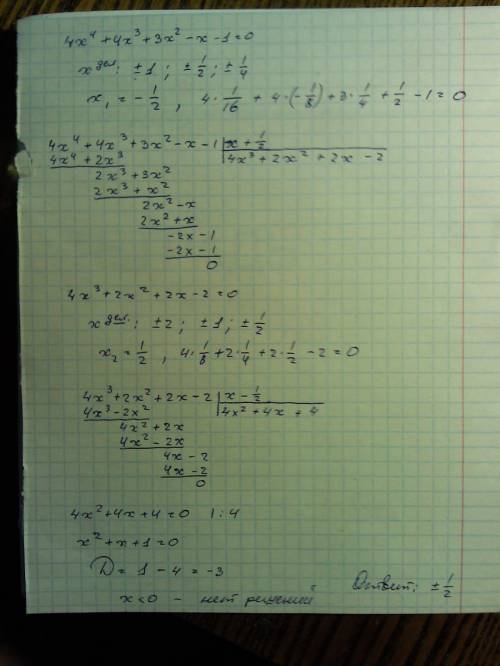 4x⁴ + 4x³ + 3x² - x - 1 = 0
x дел.: ±1 ; ±1/2 ; ±1/4
x₁ = -1/2 , 4·1/16 + 4·(-1/8) + 3·1/4 + 1/2 - 1 = 0
4x⁴ + 4x³ + 3x² - x - 1 | x + 1/2
4x⁴ + 2x³ | 4x³ + 2x² + 2x - 2
2x³ + 3x²
2x³ + x²
2x² - x
2x² + x
-2x - 1
-2x - 1
0
4x³ + 2x² + 2x - 2 = 0
x дел.: ±2 ; ±1 ; ±1/2
x₂ = 1/2 , 4·1/8 + 2·1/4 + 2·1/2 - 2 = 0
4x³ + 2x² + 2x - 2 | x - 1/2
4x³ - 2x² | 4x² + 4x + 4
4x² + 2x
4x² - 2x
4x - 2
4x - 2
0
4x² + 4x + 4 = 0 | : 4
x² + x + 1 = 0
D = 1 - 4 = -3
x < 0 - нет решений
Ответ: ±1/2